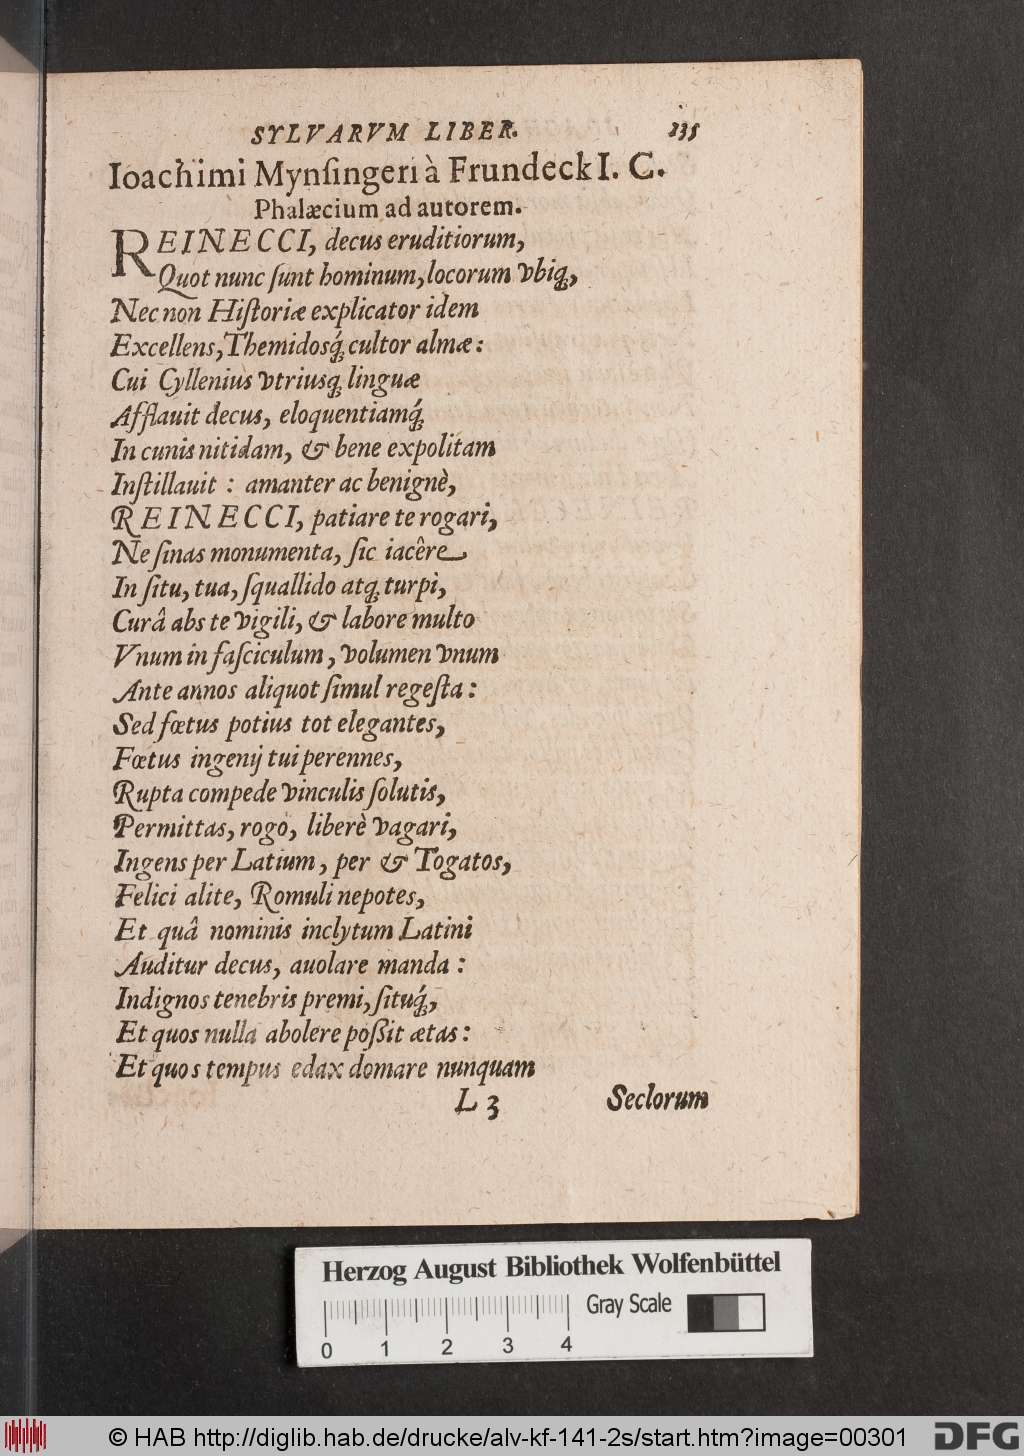 SYLVARVM LIBER. 235
Ioachimi Mynſingeri à Frundeck I. C.
Phalæcium ad autorem.
REINECCI, decus eruditiorum,
Quot nunc ſunt hominum, locorum vbiq́;,
Nec non Hiſtoriæ explicator idem
Excellens, Themidosq́; cultor almæ:
Cui Cyllenius vtriusq; linguæ
Afflauit decus, eloquentiamq́;
In cunis nitidam, & bene expolitam
Inſtillauit : amanter ac benignè,
REINECCI, patiare te rogari,
Ne ſinas monumenta, ſic iacêre
In ſitu, tua, ſquallido atq; turpi,
Curâ abs te vigili, & labore multo
Vnum in faſciculum, volumen vnum
Ante annos aliquot ſimul regeſta:
Sed fœtus potius tot elegantes,
Fœtus ingenij tui perennes,
Rupta compede vinculis ſolutis,
Permittas, rogo, liberè vagari,
Ingens per Latium, per & Togatos,
Felici alite, Romuli nepotes,
Et quâ nominis inclytum Latini
Auditur decus, auolare manda:
Indignos tenebris premi, ſituq́;,
Et quos nulla abolere poßit ætas:
Et quos tempus edax domare nunquam
L 3 Seclorum
Herzog August Bibliothek Wolfenbüttel
Gray Scale
0 1 2 3 4
© HAB http://diglib.hab.de/drucke/alv-kf-141-2s/start.htm?image=00301
DFG